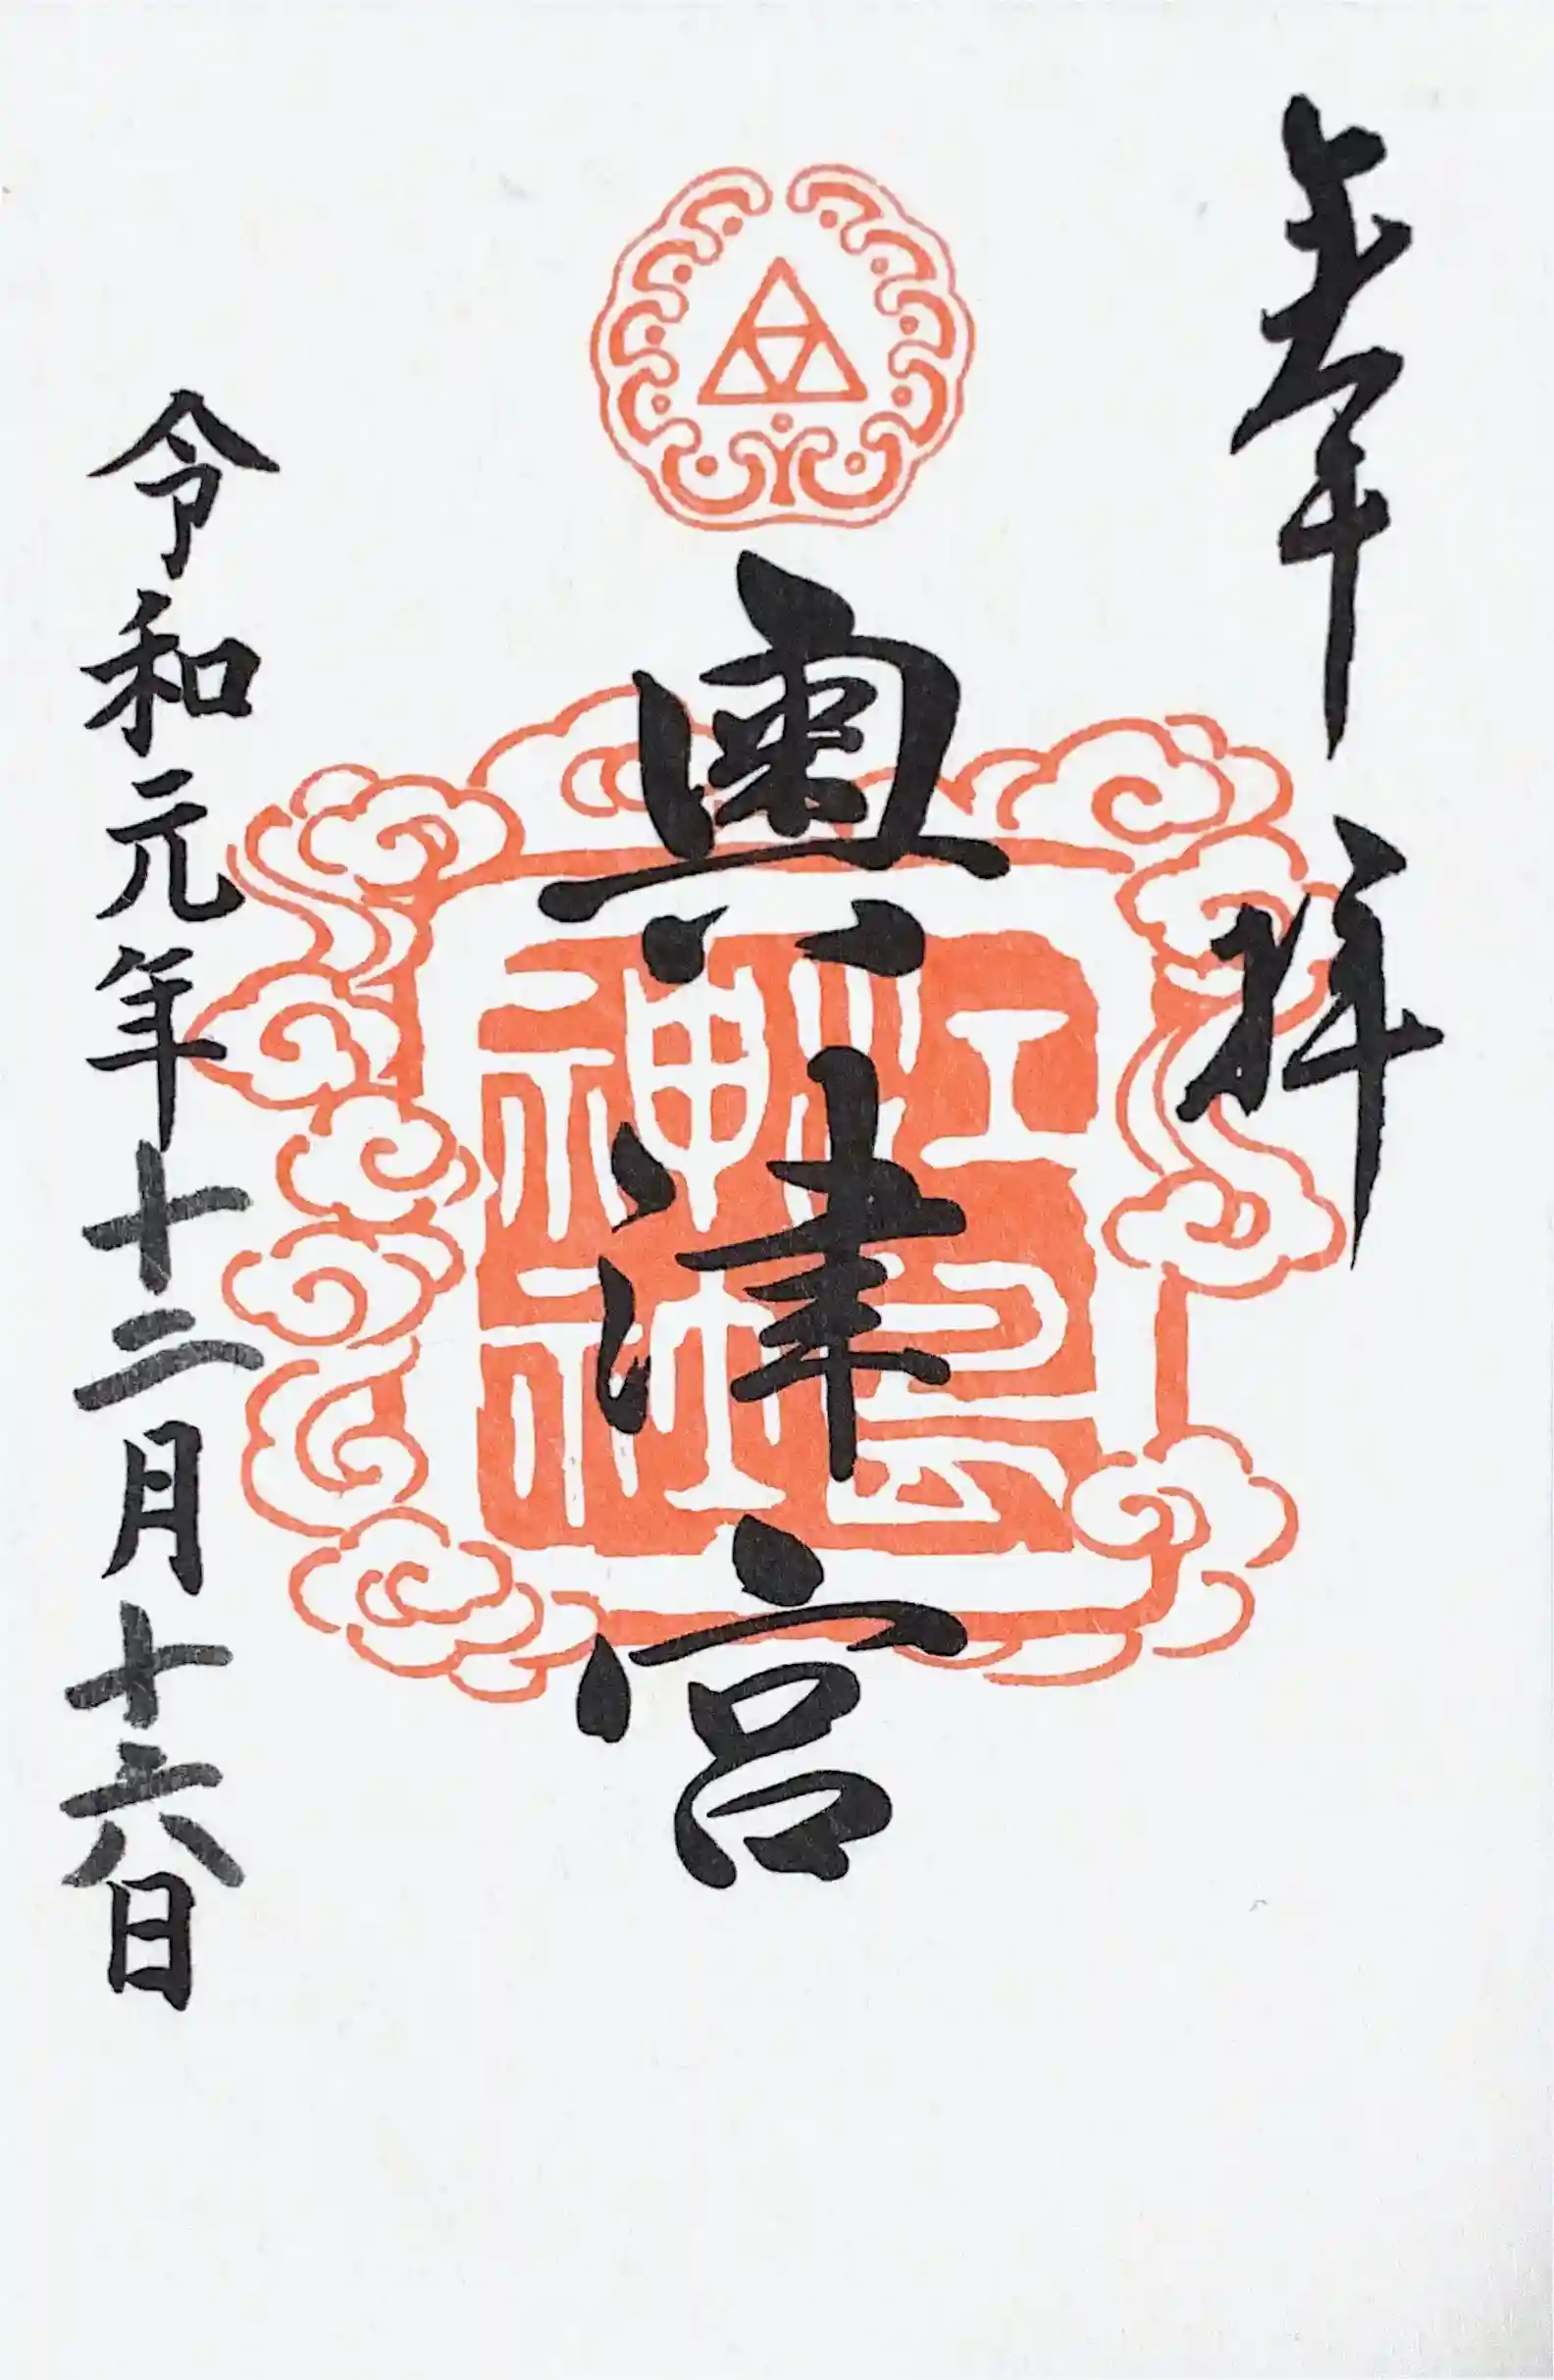 奉拝
奥津宮
江島神社
令和元年十二月十六日